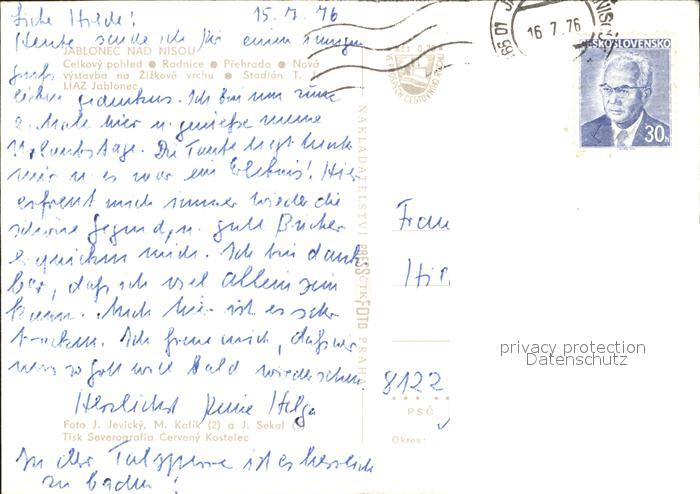 Liebe Hilde! 15.7.76
Heute sende ich Dir einen sonnigen
JABLONEC NAD NISOU
Celkový pohled ● Radnice ● Přehrada ● Nová
výstavba na Žižkově vrchu ● Stadión T. J.
LIAZ Jablonec
Ich bin nun zum
2. Male hier u. genieße meine
Urlaubstage. Die Taufe liegt hinter
mir u es war ein Erlebnis! Hier
erfreut mich immer wieder die
schöne Gegend, u. gute Bücher
erquicken mich. Ich bin dank-
bar, daß ich viel allein sein
kann. Auch hier ist es sehr
trocken. Ich freue mich, daß wir
uns so Gott will bald wiedersehen
Herzlichst Deine Helga
Foto J. Jevický, M. Kolík (2) a J. Sekal
Tisk Severografia Červený Kostelec
In der Talsperre ist es herrlich
zu baden!
NAKLADATELSTVÍ PRESSFOTO PRAHA
16 7. 76
ČESKOSLOVENSKO
30h
Frau
8122
PSČ
Okres:
privacy protection
Datenschutz